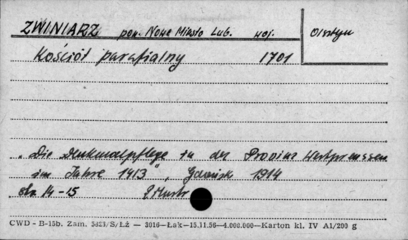 ZWINIARZ pow. Nowe Miasto Lub. woj. Olsztyn
Kościół parafialny 1701
"Die Denkmalpflege in der Provinz Westpreussen
im Jahre 1913", Gdańsk 1914
str. 14-15 2 illustr
CWD - B-15b. Zam. 5423/S/Łż — 3016—Łak—15.11.56—4.000.000—Karton kl. IV A1/200 g